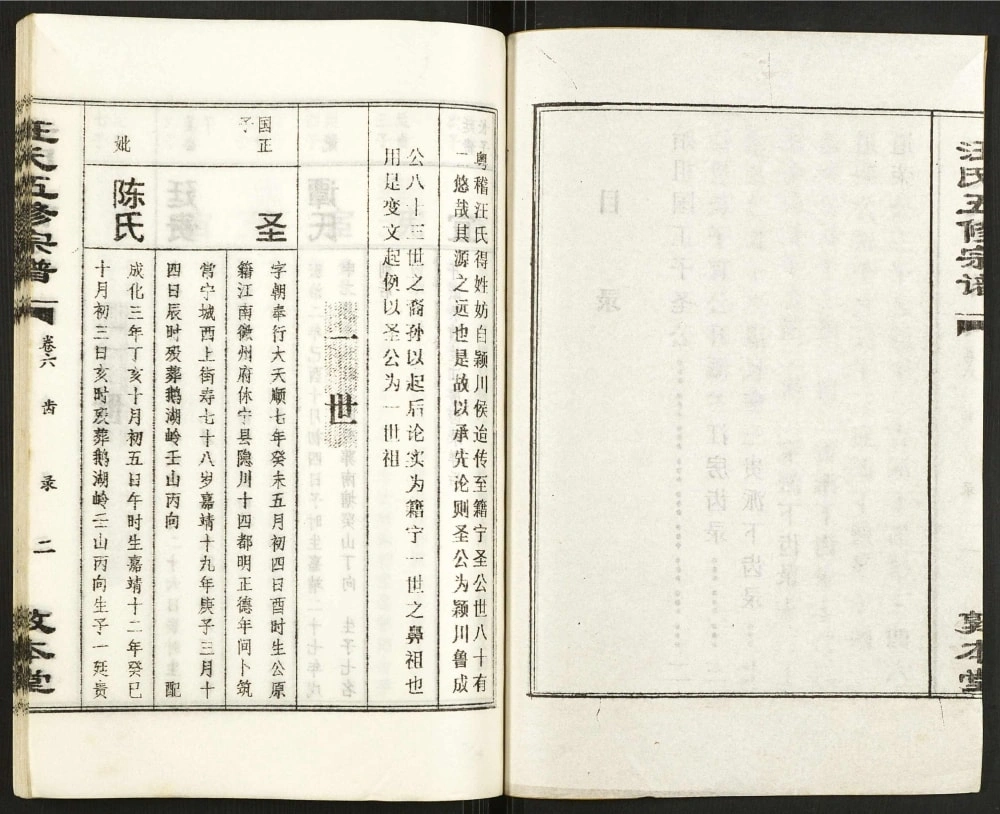 汪氏五修宗谱
敦本堂
粤稽汪氏得姓妨自颖川侯迨传至籍宁圣公世八十有
二悠哉其源之远也是故以承先论则圣公为颖川鲁成
公八十三世之裔孙以起后论实为籍宁一世之鼻祖也
用是变文起例以圣公为一世祖
一世
国正
子
圣
字朝奉行大天顺七年癸未五月初四日酉时生公原
籍江南徽州府休宁县隐川十四都明正德年间卜筑
常宁城西上街寿七十八岁嘉靖十九年庚子三月十
四日辰时殁葬鹅湖岭壬山丙向
配
妣
陈氏
成化三年丁亥十月初五日午时生嘉靖十二年癸巳
十月初三日亥时殁葬鹅湖岭壬山丙向生子一廷贵
汪氏五修宗谱
卷六
齿
录
二
敦本堂